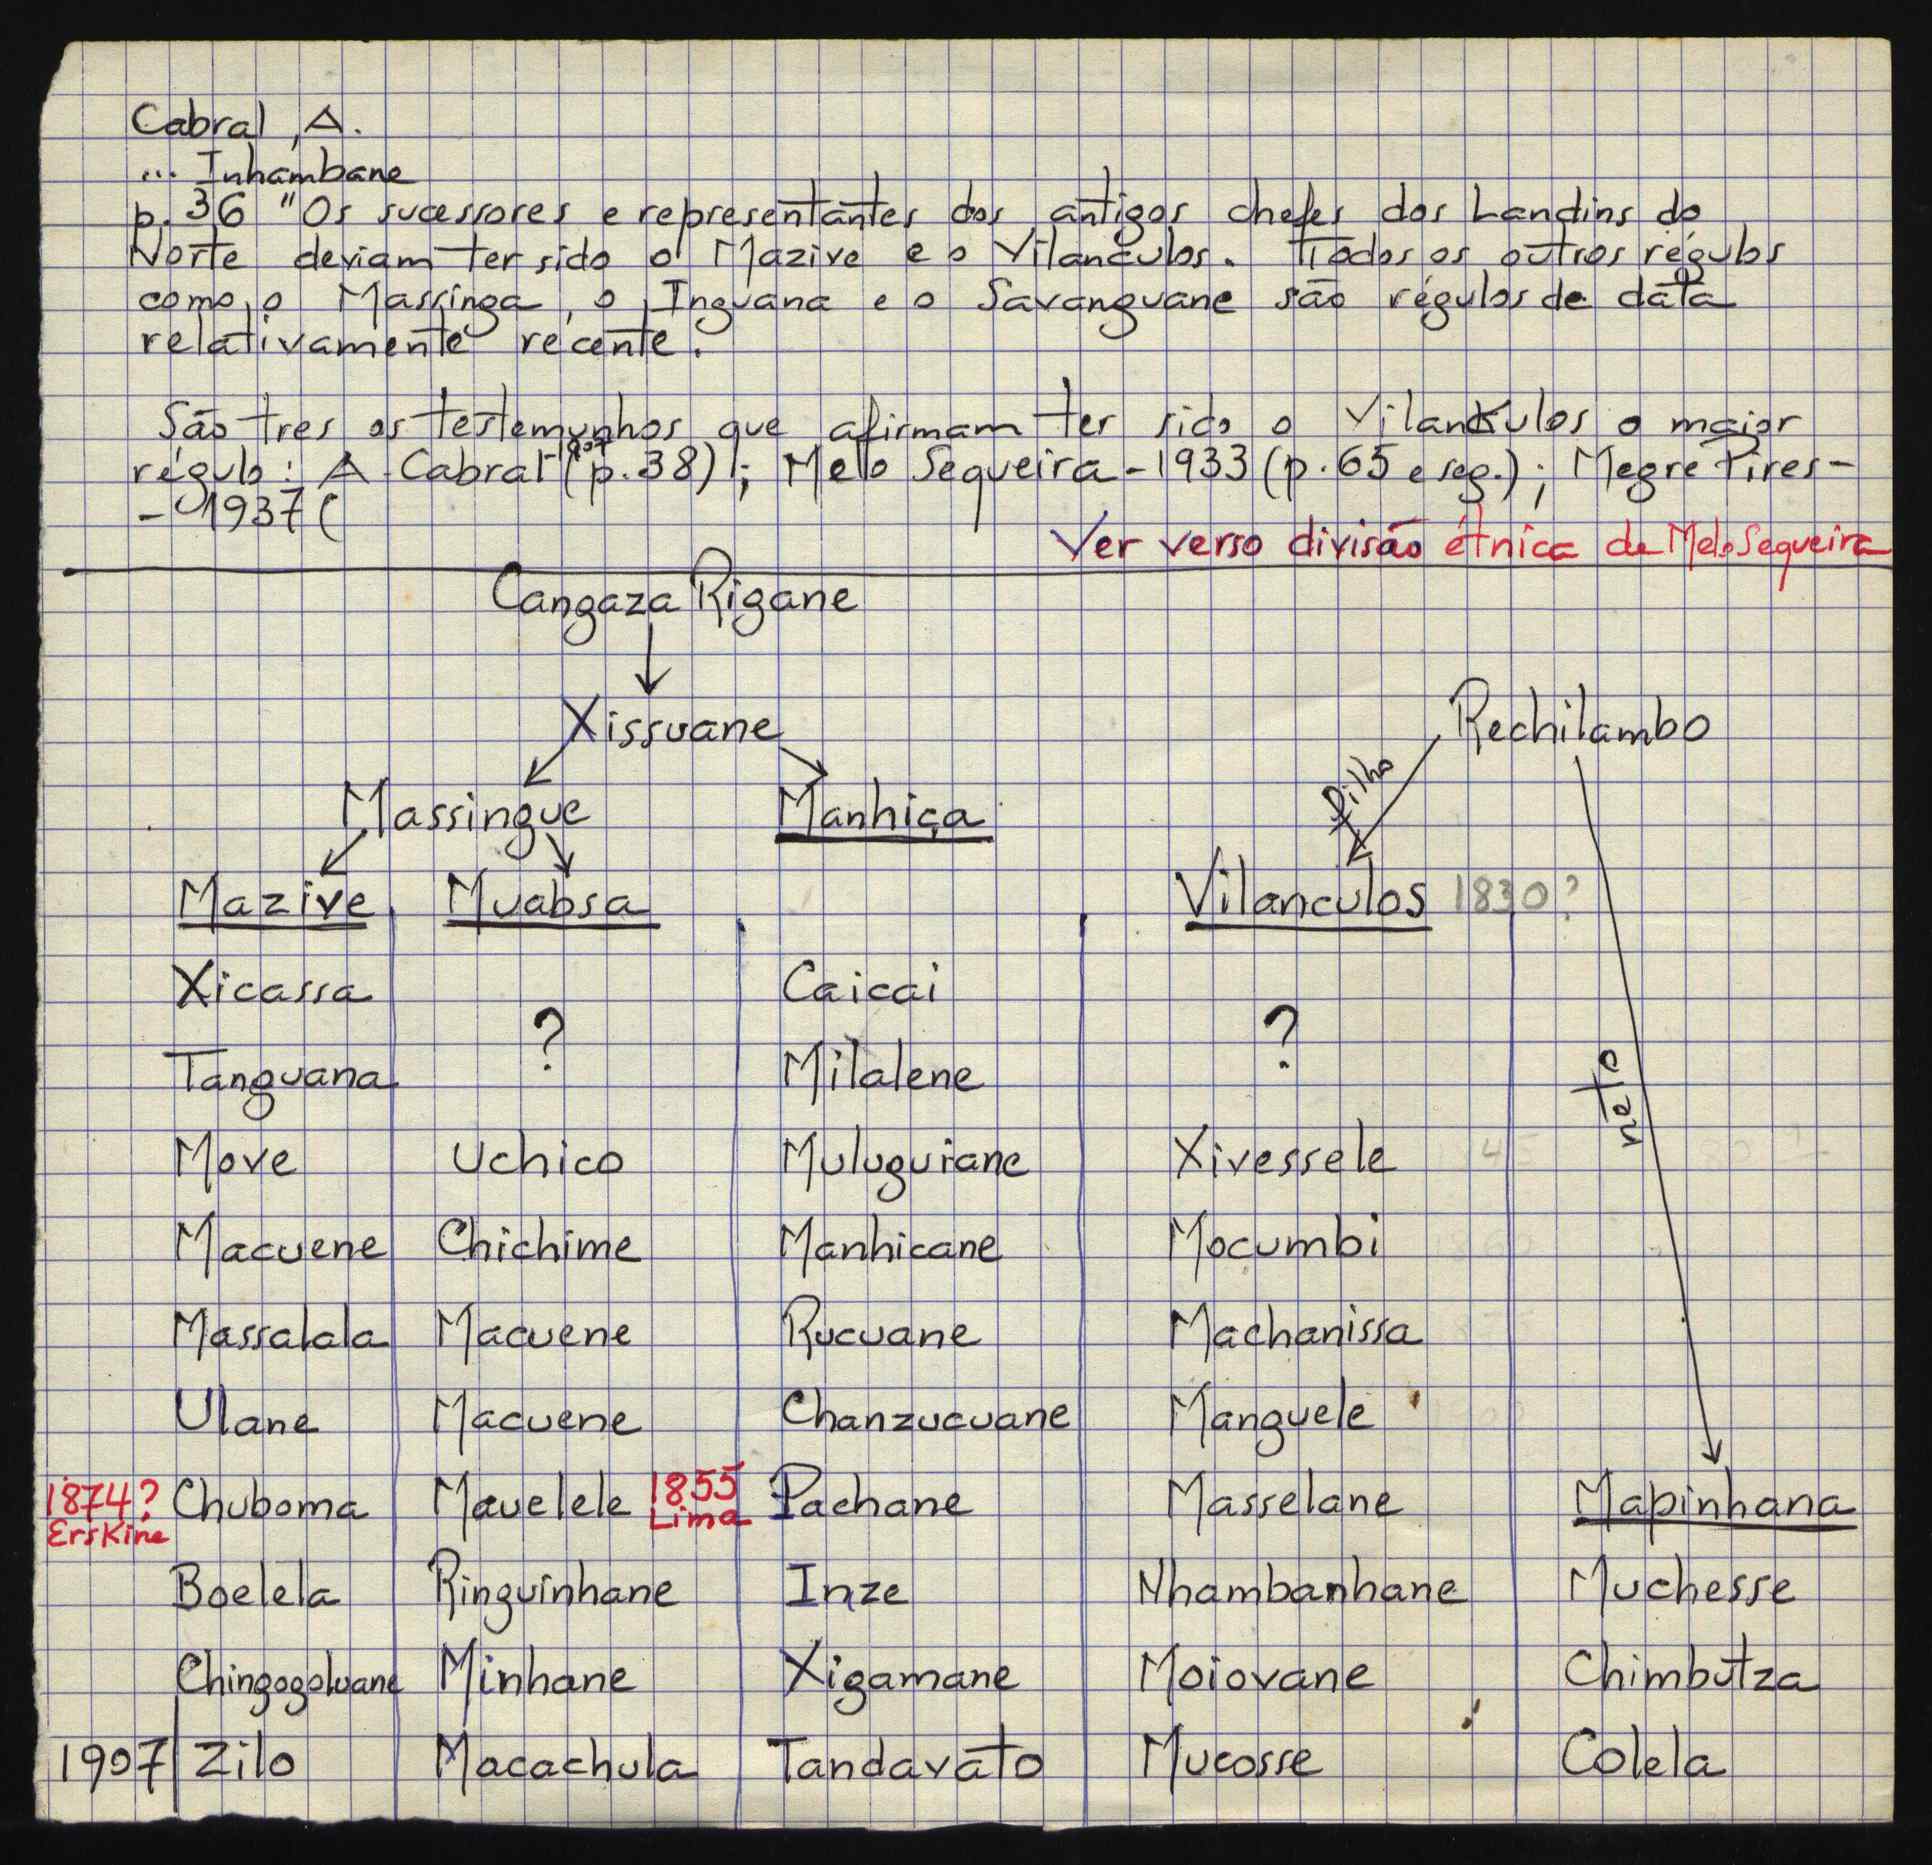 Cabral, A.
... Inhambane
p. 36 "Os sucessores e representantes dos antigos chefes dos Landins do
Norte deviam ter sido o Mazive e o Vilanculos. Todos os outros régulos
como o Massinga, o Inguana e o Savanguane são régulos de data
relativamente recente.
São tres os testemunhos que afirmam ter sido o Vilankulos o maior
régulo: A. Cabral - 1907 (p. 38); Melo Sequeira - 1933 (p. 65 e seg.); Megre Pires -
- 1937 (
Ver verso divisão étnica de Melo Sequeira
Cangaza Rigane
Xissuane Rechilambo
filho
Massingue Manhiça
Mazive Muabsa Vilanculos 1830?
Xicassa ? Caicai ?
Tanguana Milalene
neto
Move Uchico Muluguiane Xivessele
Macuene Chichime Manhicane Mocumbi
Massalala Macuene Rucuane Machanissa
Ulane Macuene Chanzucuane Manguele
1874? Chuboma Mavelele 1855 Pachane Masselane Mapinhana
Erskine Lima
Boelela Ringuinhane Inze Nhambanhane Muchesse
Chingogoluane Minhane Xigamane Moiovane Chimbutza
1907 Zilo Macachula Tandavato Mucosse Colela